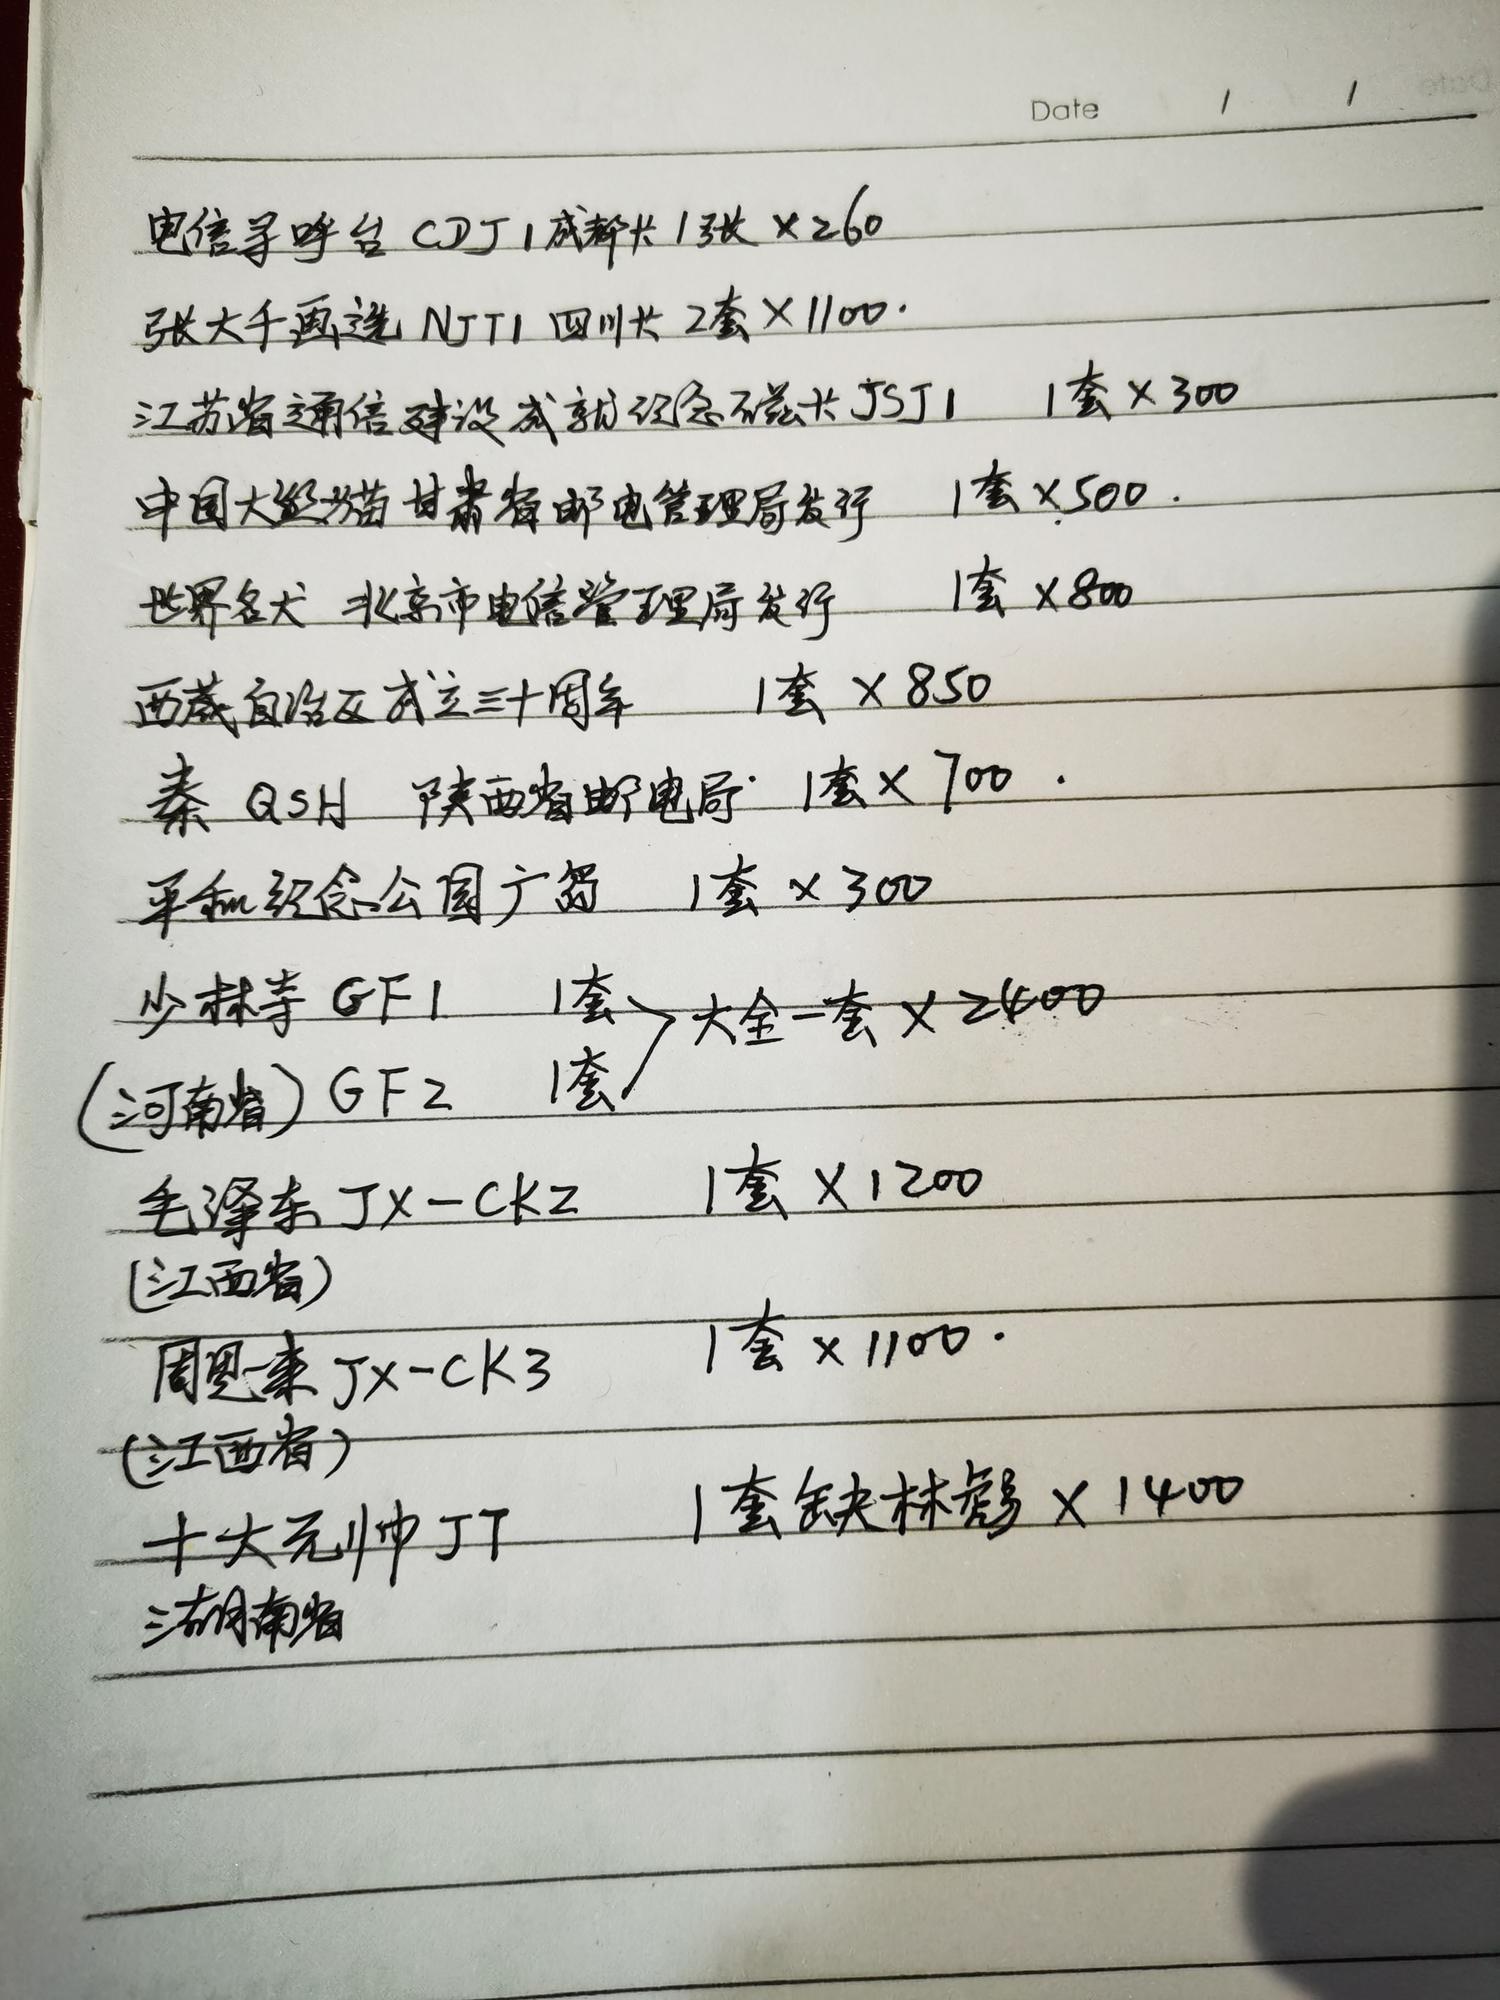 Date / /
电信寻呼台 CDJ1成都卡 1张 ×260
张大千画选 NJT1 四川卡 2套×1100.
江苏省通信建设成就纪念磁卡JSJ1 1套×300
中国大熊猫 甘肃省邮电管理局发行 1套×500.
世界名犬 北京市电信管理局发行 1套×800
西藏自治区成立三十周年 1套×850
秦 QSH 陕西省邮电局· 1套×700.
平和纪念公园广岛 1套×300
少林寺 GF1 1套
大全一套×2400
(河南省) GF2 1套
毛泽东JX-CK2 1套×1200
(江西省)
周恩来JX-CK3 1套×1100.
(江西省)
十大元帅JT 1套缺林彪×1400
湖南省